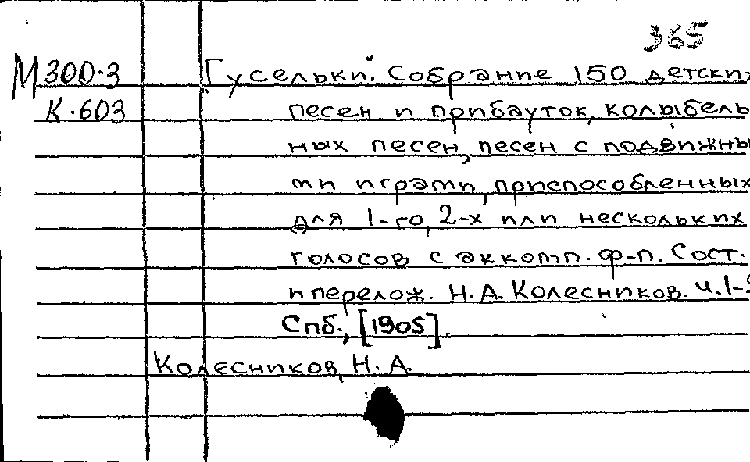 365
М300.3 Гусельки. Собрание 150 детских
К.603 песен и прибауток, колыбель
ных песен, песен с подвижны
ми играми, приспособленных
для 1-го, 2-х или нескольких
голосов с аккомп. ф-п. Сост.
и перелож. Н.А. Колесников. ч.1-
Спб., [1905]
Колесников, Н.А.